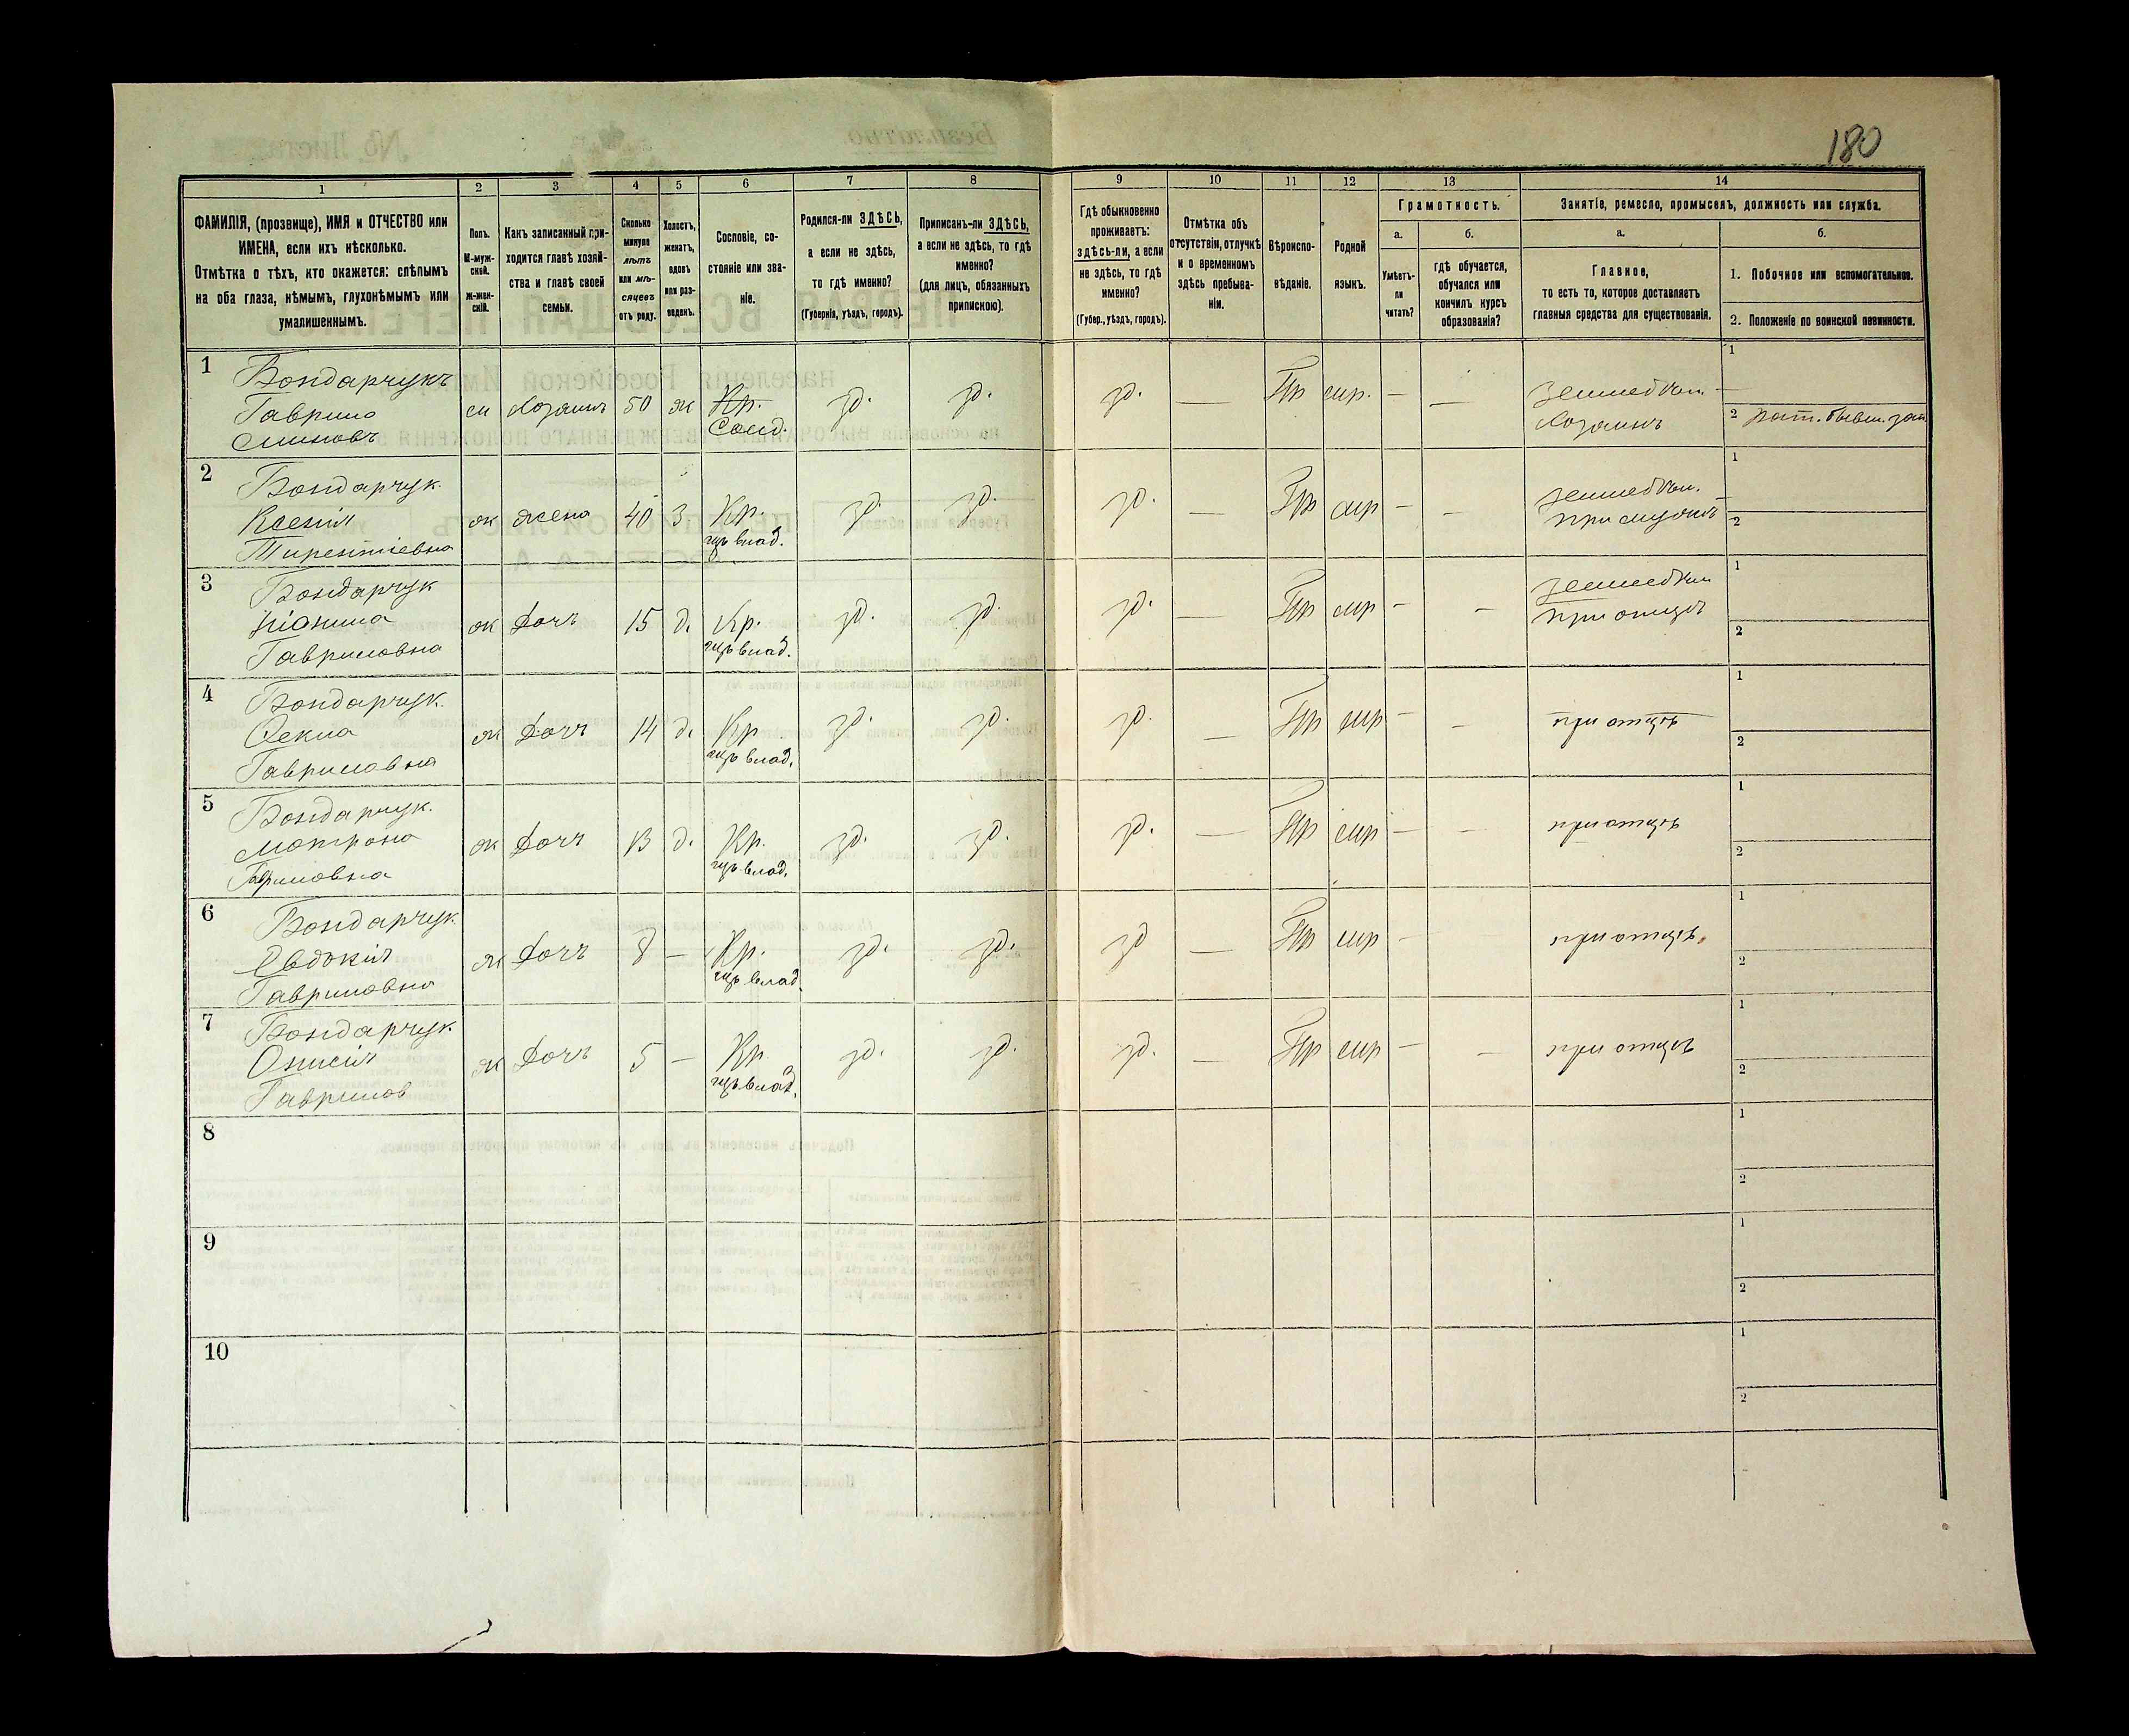 180
1 2 3 4 5 6 7 8 9 10 11 12 13 14
ФАМИЛІЯ, (прозвище), ИМЯ и ОТЧЕСТВО или
ИМЕНА, если ихъ нѣсколько.
Отмѣтка о тѣхъ, кто окажется: слѣпымъ
на оба глаза, нѣмымъ, глухонѣмымъ или
умалишеннымъ.
Полъ.
М-муж-
ской.
Ж-жен-
скій.
Какъ записанный при-
ходится главѣ хозяй-
ства и главѣ своей
семьи.
Сколько
минуло
лѣтъ
или мѣ-
сяцевъ
отъ роду.
Холостъ,
женатъ,
вдовъ
или раз-
веденъ.
Сословіе, со-
стояніе или зва-
ніе.
Родился-ли ЗДѢСЬ,
а если не здѣсь,
то гдѣ именно?
(Губернія, уѣздъ, городъ).
Приписанъ-ли ЗДѢСЬ,
а если не здѣсь, то гдѣ
именно?
(для лицъ, обязанныхъ
припискою).
Гдѣ обыкновенно
проживаетъ:
здѣсь-ли, а если
не здѣсь, то гдѣ
именно?
(Губер., уѣздъ, городъ).
Отмѣтка объ
отсутствіи, отлучкѣ
и о временномъ
здѣсь пребыва-
ніи.
Вѣроиспо-
вѣданіе.
Родной
языкъ.
Грамотность.
а.
Умѣетъ-
ли
читать?
б.
гдѣ обучается,
обучался или
кончилъ курсъ
образованія?
Занятіе, ремесло, промыселъ, должность или служба.
а.
Главное,
то есть то, которое доставляетъ
главныя средства для существованія.
б.
1. Побочное или вспомогательное.
2. Положеніе по воинской повинности.
1 Бондарчукъ
Гаврило
м Хозяинъ 50 ж Кр. зд. зд. зд. — Пр мр. — — земледѣл.
Собст.
Хозяинъ
1 —
2 рат.
2 Бондарчук.
Ксенія
Терентіевна
ж жена 40 з Кр. зд. зд. зд. — Пр мр — — земледѣл.
влад.
при мужѣ
1
2
3 Бондарчук
Гавриловна
ж Дочь 15 д. Кр. зд. зд. зд. — Пр мр — — земледѣл
влад.
при отцѣ
1
2
4 Бондарчук.
Ѳекла
Гавриловна
ж Дочь 14 д. Кр зд. зд. зд. — Пр мр — — при отцѣ
влад.
1
2
5 Бондарчук.
Мотрона
Гавриловна
ж Дочь 13 д. Кр. зд. зд. зд. — Пр мр — — при отцѣ
влад.
1
2
6 Бондарчук.
Евдокія
Гавриловна
ж Дочь 8 — Кр. зд. зд. зд — Пр мр — при отцѣ.
влад.
1
2
7 Бондарчук.
Онисія
Гаврилов
ж Дочь 5 — Кр зд. зд. зд. — Пр мр — — при отцѣ
влад.
1
2
8
1
2
9
1
2
10
1
2